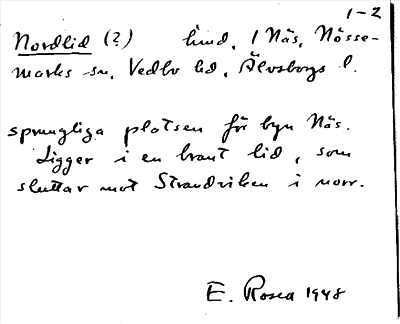 1-2
Nordlid (?) lind. / Näs, Nösse-
marks sn, Vedbo hd, Älvsborgs l.
sprungliga platsen för byn Näs.
Ligger i en brant lid, som
sluttar mot Strandviken i norr.
E. Rosea 1948